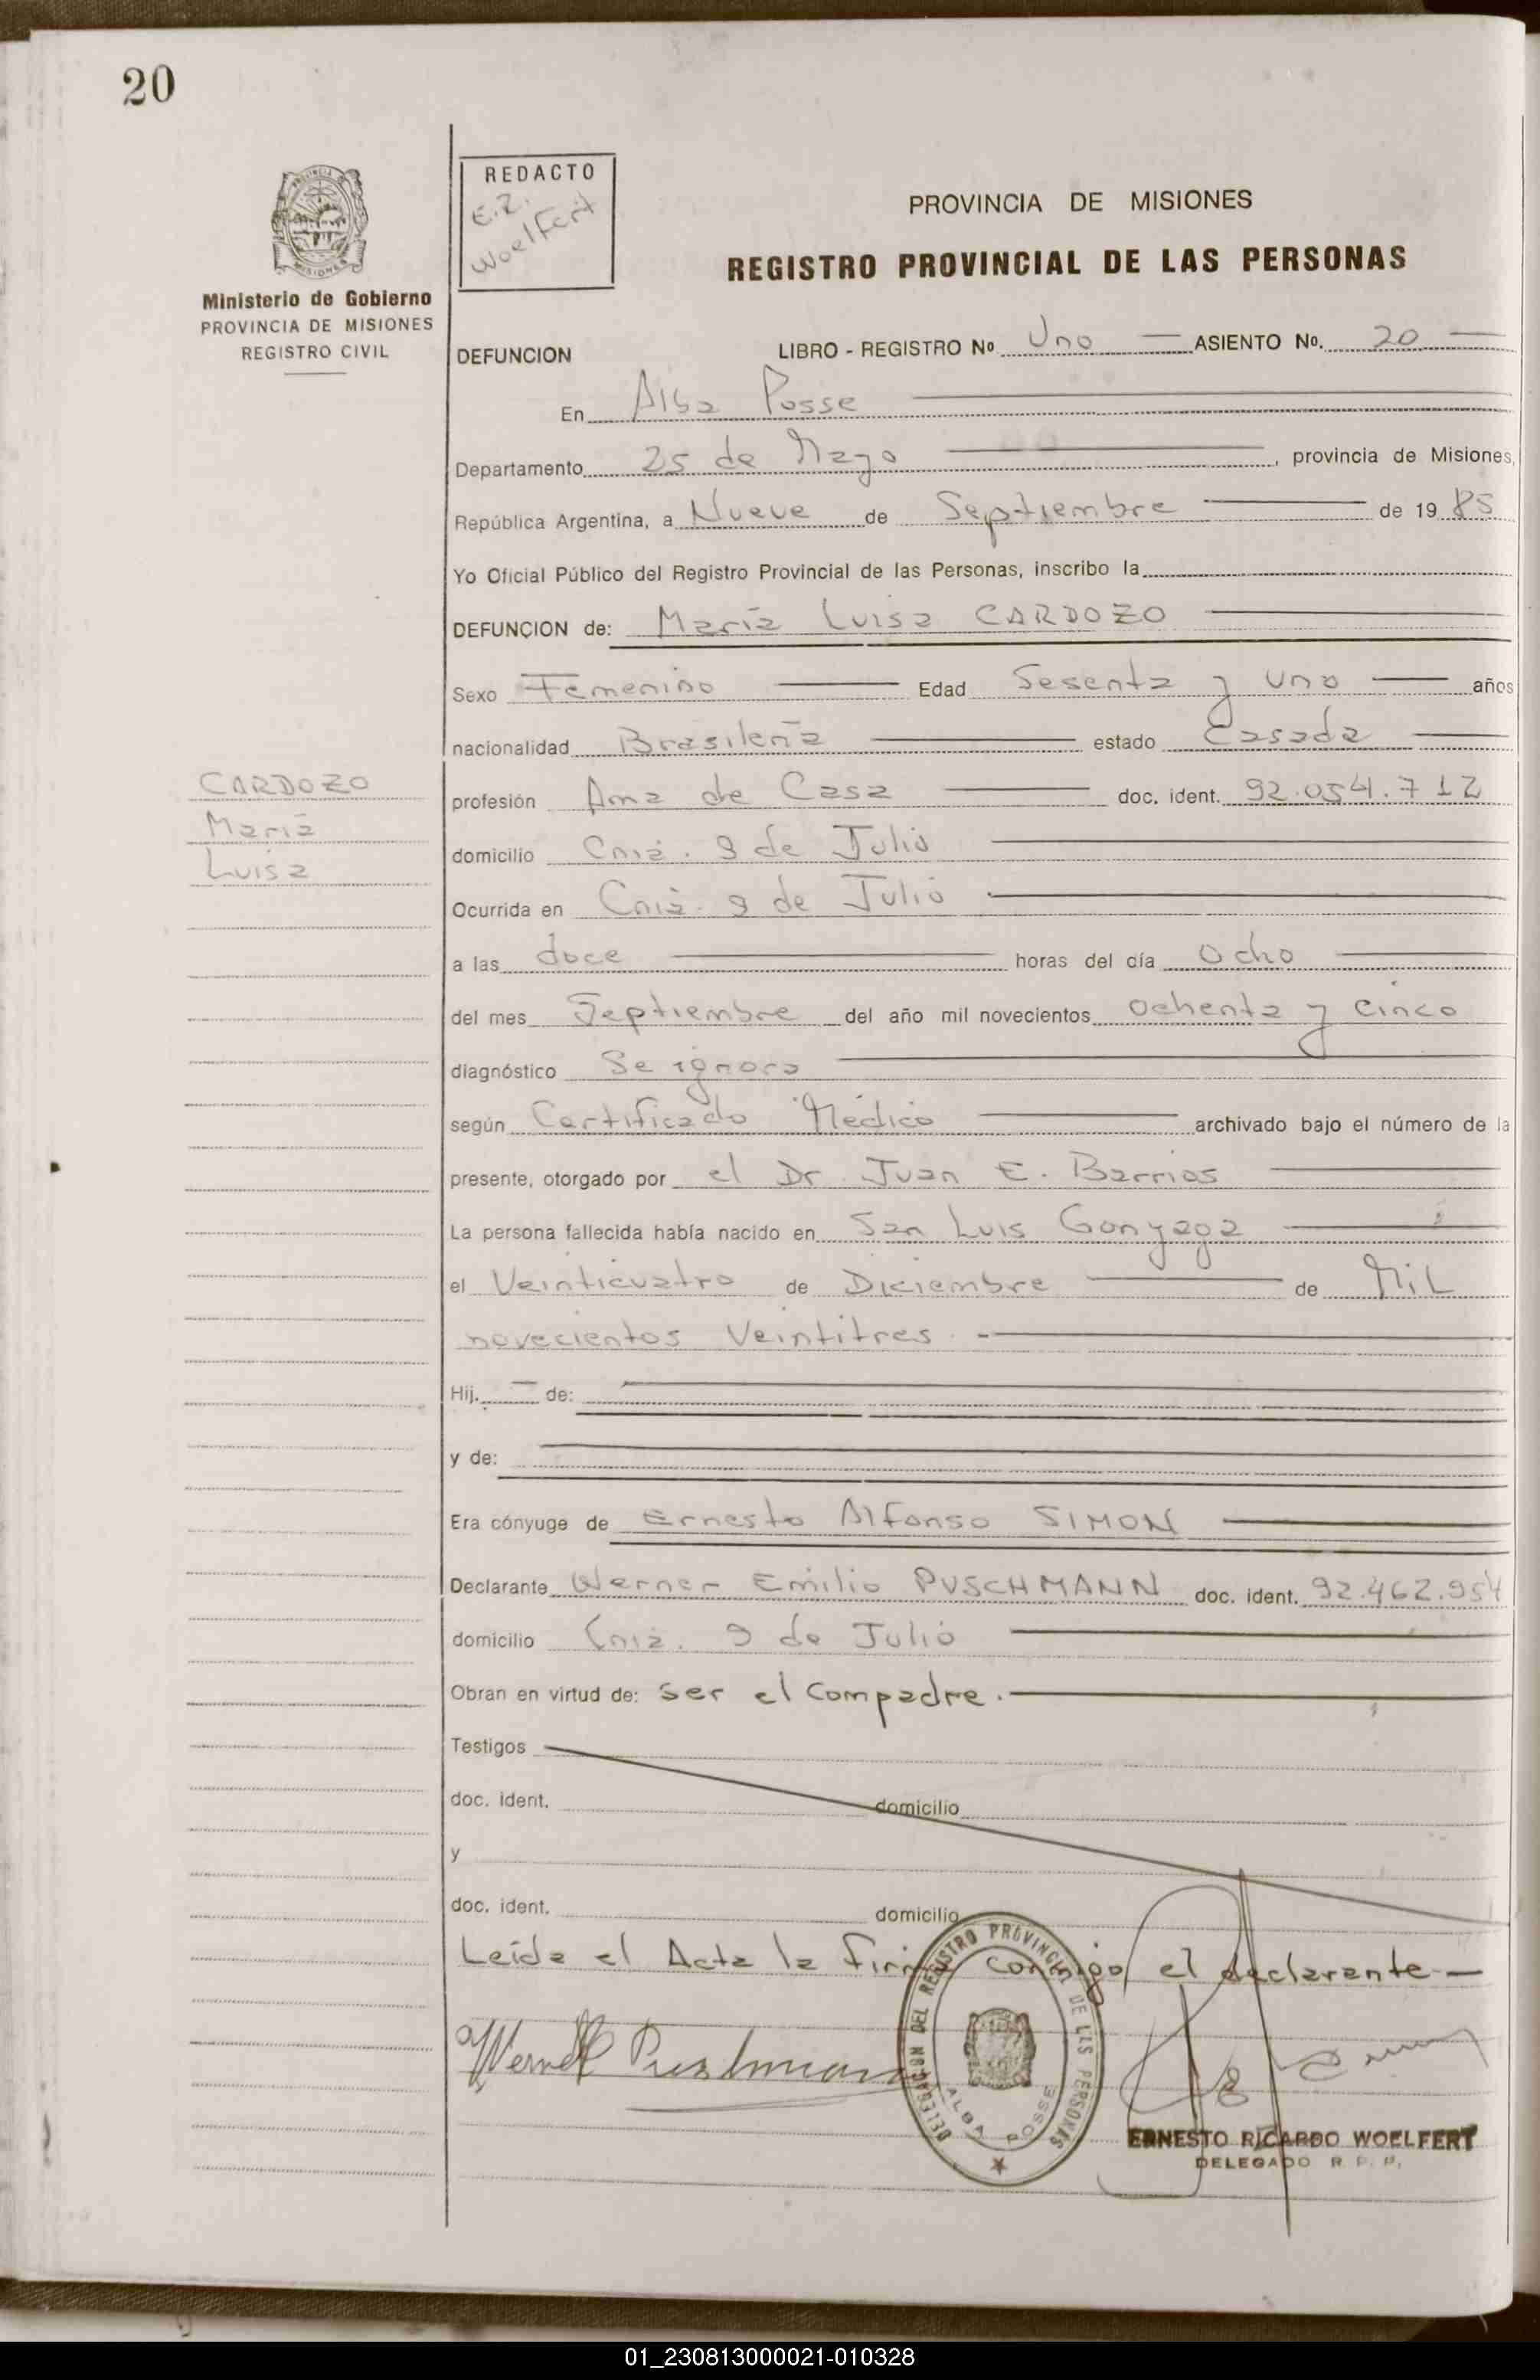 20
PROVINCIA
MISIONES
Ministerio de Gobierno
PROVINCIA DE MISIONES
REGISTRO CIVIL
REDACTO
E.R.
Woelfert
PROVINCIA DE MISIONES
REGISTRO PROVINCIAL DE LAS PERSONAS
DEFUNCION LIBRO - REGISTRO Nº Uno ASIENTO No. 20
En Alba Posse
Departamento 25 de Mayo, provincia de Misiones,
República Argentina, a Nueve de Septiembre de 19 85
Yo Oficial Público del Registro Provincial de las Personas, inscribo la
DEFUNCION de: María Luisa CARDOZO
Sexo Femenino Edad Sesenta y uno años
nacionalidad Brasileña estado Casada
CARDOZO
María
Luisa
profesión Ama de Casa doc. ident. 92.054.712
domicilio Cnia. 9 de Julio
Ocurrida en Cnia. 9 de Julio
a las doce horas del día Ocho
del mes Septiembre del año mil novecientos ochenta y cinco
diagnóstico Se ignora
según Certificado Médico archivado bajo el número de la
presente, otorgado por el Dr. Juan E. Barrios
La persona fallecida había nacido en San Luis Gonzaga
el Veinticuatro de Diciembre de Mil
novecientos Veintitres.-
Hij. — de:
y de:
Era cónyuge de Ernesto Alfonso SIMON
Declarante Werner Emilio PUSCHMANN doc. ident. 92.462.954
domicilio Cnia. 9 de Julio
Obran en virtud de: ser el compadre.
Testigos
doc. ident. domicilio
y
doc. ident. domicilio
Leída el Acta la firma conmigo el declarante—
DELEGACION DEL REGISTRO PROVINCIAL DE LAS PERSONAS
ALBA POSSE
ERNESTO RICARDO WOELFERT
DELEGADO R. P. P.
01_230813000021-010328